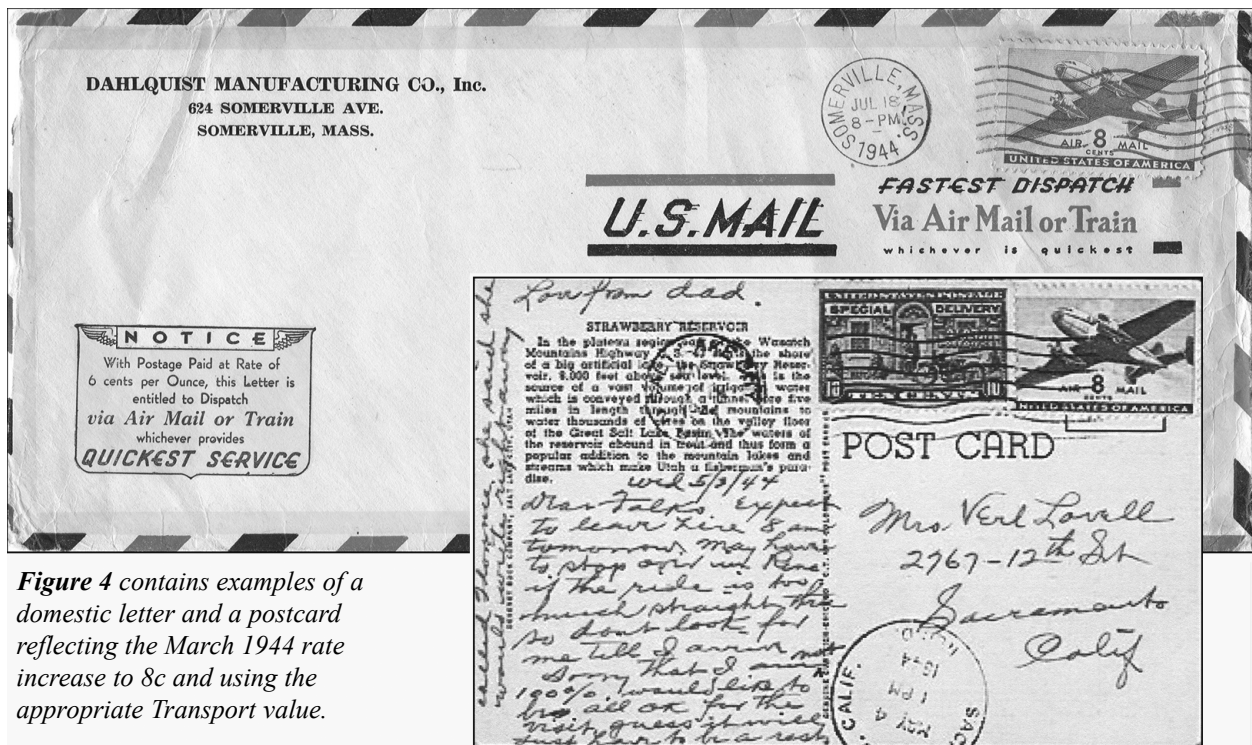 DAHLQUIST MANUFACTURING CO., Inc.
624 SOMERVILLE AVE.
SOMERVILLE, MASS.
SOMERVILLE, MASS.
JUL 18
8-PM
1944
AIR 8 MAIL
CENTS
UNITED STATES OF AMERICA
U.S. MAIL
FASTEST DISPATCH
Via Air Mail or Train
whichever is quickest
NOTICE
With Postage Paid at Rate of
6 cents per Ounce, this Letter is
entitled to Dispatch
via Air Mail or Train
whichever provides
QUICKEST SERVICE
Love from dad.
STRAWBERRY RESERVOIR
In the plateau region of the Wasatch
Mountains Highway U. S. is the shore
of a big artificial lake, the Strawberry Reser-
voir, 8,000 feet above sea level. This is the
source of a vast volume of irrigation water
which is conveyed through a tunnel five
miles in length through the mountains to
water thousands of acres on the valley floor
of the Great Salt Lake Basin. The waters of
the reservoir abound in trout and thus form a
popular addition to the mountain lakes and
streams which make Utah a fisherman's para-
dise.
Wed 5/3/44
Dear Folks, Expect
to leave here 8 am
tomorrow. May have
to stop over in Reno
if the ride is too
much straight thru
so dont look for
me till I arrive
Sorry that I am not
100%. Would like to
be all ok for the
visit, guess it will
just have to be a rest
she said she
would write right away
SPECIAL DELIVERY
10 10
AIR 8 MAIL
CENTS
UNITED STATES OF AMERICA
POST CARD
Mrs. Verl Lovell
2767-12th St
Sacramento
Calif
CALIF.
SAC
MAY 4
1 PM
1944
Figure 4 contains examples of a
domestic letter and a postcard
reflecting the March 1944 rate
increase to 8c and using the
appropriate Transport value.